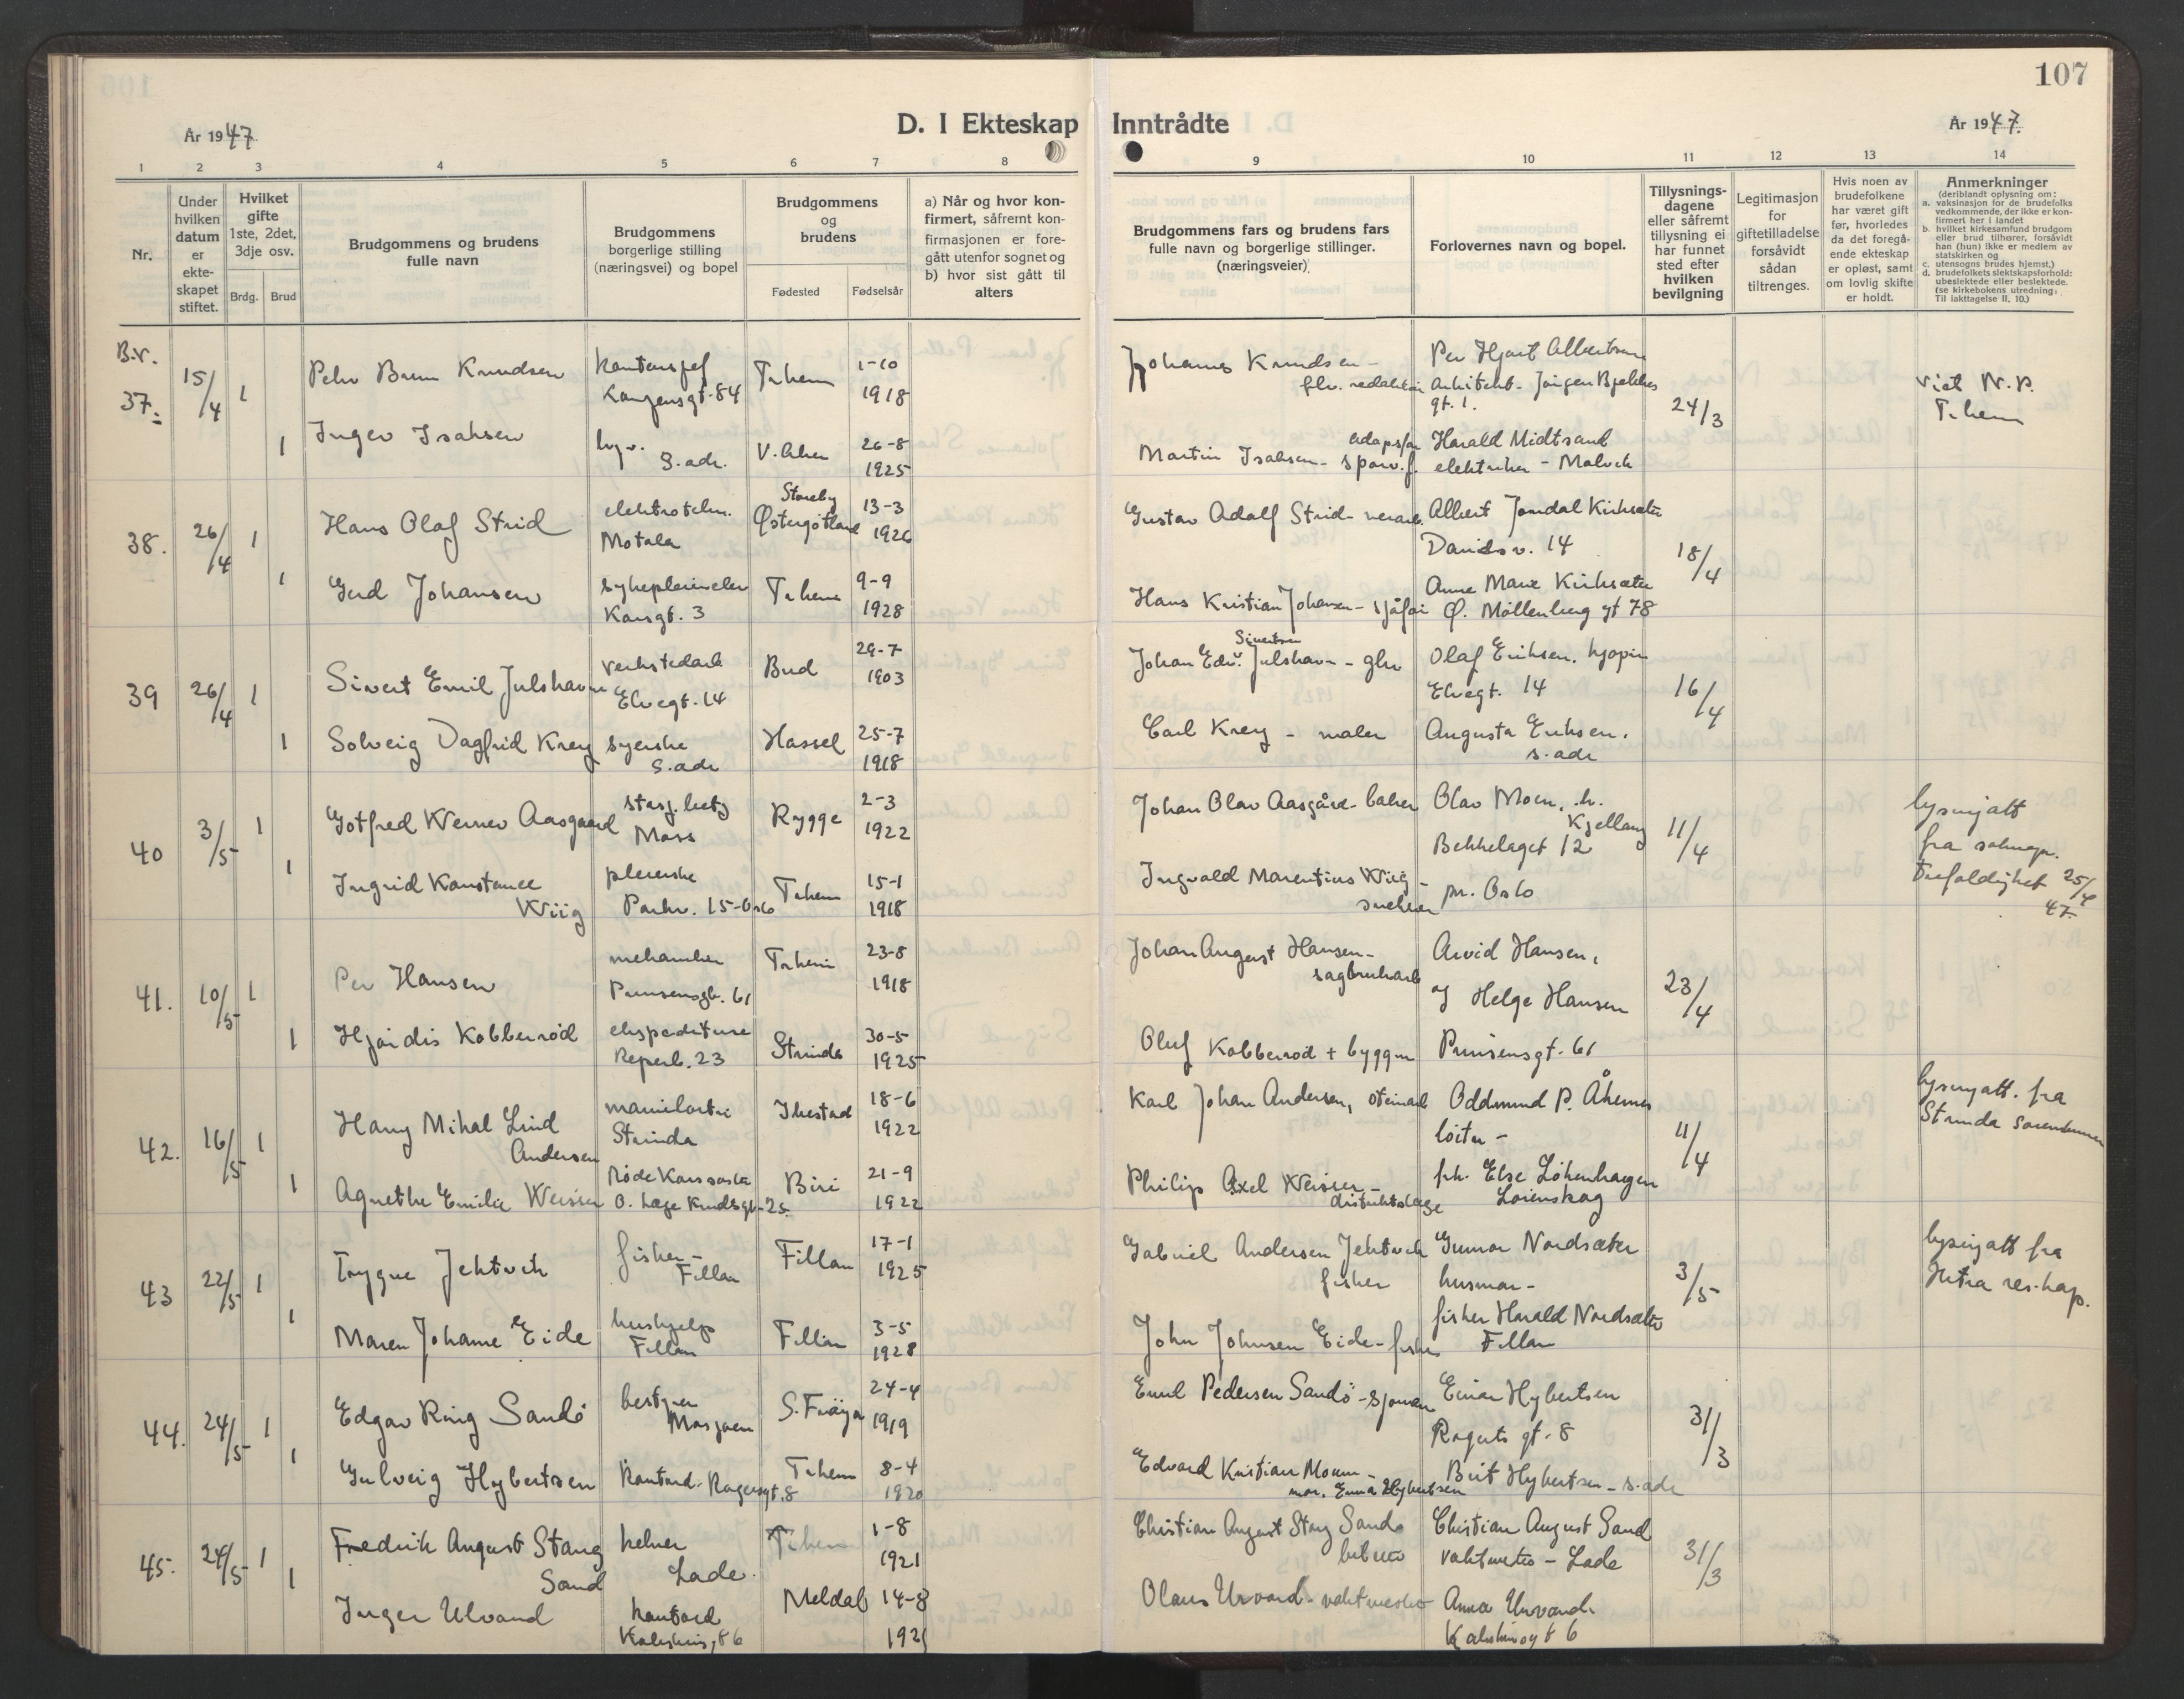 107
År 1947
D. I Ekteskap Inntrådte
År 1947.
1 2 3 4 5 6 7 8 9 10 11 12 13 14
Nr.
Under
hvilken
datum
er
ekte-
skapet
stiftet.
Hvilket
gifte
1ste, 2det,
3dje osv.
Brdg. Brud
Brudgommens og brudens
fulle navn
Brudgommens
borgerlige stilling
(næringsvei) og bopel
Brudgommens
og
brudens
Fødested Fødselsår
a) Når og hvor kon-
firmert, såfremt kon-
firmasjonen er fore-
gått utenfor sognet og
b) hvor sist gått til
alters
Brudgommens fars og brudens fars
fulle navn og borgerlige stillinger.
(næringsveier)
Forlovernes navn og bopel.
Tillysnings-
dagene
eller såfremt
tillysning ei
har funnet
sted efter
hvilken
bevilgning
Legitimasjon
for
giftetilladelse
forsåvidt
sådan
tiltrenges.
Hvis noen av
brudefolkene
har været gift
før, hvorledes
da det foregå-
ende ekteskap
er opløst, samt
om lovlig skifte
er holdt.
Anmerkninger
(deriblandt oplysning om:
a. vaksinasjon for de brudefolks
vedkommende, der ikke er kon-
firmert her i landet
b. hvilket kirkesamfund brudgom
eller brud tilhører, forsåvidt
han (hun) ikke er medlem av
statskirken og
c. utensogns brudes hjemst.)
d. brudefolkets slektskapsforhold:
ubeslektede eller beslektede.
(se kirkebokens utredning:
Til iakttagelse II. 10.)
B.v.
37. 15/4 1
Knudsen
kontorsjef
Kongensgt. 84
T.hem
1-10
1918
Johannes Knudsen
Per Hjort Albertsen
arkitekt - Jørgen Bjelkes
gt. 1.
24/3
viet N.P.
T.hem
1 Inger Isaksen
s. adr.
V. Aker
26-8
1925
Martin Isaksen
Harald Midtsand
elektriker - Malvik
38. 26/4 1
Hans Olaf Strid
Motala
Østergötland
13-3
1926
Gustav Adolf Strid
Albert Kirksæter
Davidsv. 14
18/4
1 Gerd Johansen
Korsgt. 3
T.hem
9-9
1928
Hans Kristian Johansen - sjåfør
Anne Marie Kirksæter
Ø. Møllenberg gt 78
39 26/4 1
Sivert Emil Julshavn
verkstedarb
Elvegt. 14
Bud
29-7
1903
Sivertsen
Johan Edv. Julshavn
Olaf Eriksen.
Elvegt. 14
16/4
1 Solveig Dagfrid Krey
syerske
s. adr
Hassel
25-7
1918
Carl Krey - maler
Augusta Eriksen.
s. adr
40 3/5 1
Gotfred Werner Aasgaard
Moss
Rygge
2-3
1922
Johan Olav Aasgård - baker
Olav Moen,
Bekkelaget 12
11/4
lysingatt
fra
trefoldighet 25/4
47.
1 Ingrid Konstance
Wiig
pleierske
Parkv. 15 - Oslo
T.hem
15-1
1918
Ingvald Marentius Wiig -
snekker
pr. Oslo
41. 10/5 1
Per Hansen
mekaniker
Prinsensgt. 61
T.hem
23-8
1918
Johan August Hansen -
sagbruksarb
Arvid Hansen,
og Helge Hansen
23/4
1 Hjørdis Kobberrød
ekspeditrise
Reperb. 23
Strinda
30-5
1925
Oluf Kobberrød + byggm
Prinsensgt. 61
42. 16/5 1
Harry Mihal Lind
Andersen
Strinda
Ibestad
18-6
1922
Karl Johan Andersen,
Oddmund P.
11/4
lysingatt. fra
Strinda
1 Agnethe Emilie
Røde Kors
Biri
21-9
1922
Philip Axel
distriktslege
frk. Else Løkenhagen
Lørenskog
43 22/5 1
Trygve Jektvik
fisker -
Fillan
Fillan
17-1
1925
Gabriel Andersen Jektvik
fisker
Gunnar Nordsæter
3/5
lysingatt fra
Hitra res.kap.
1 Maren Johanne Eide
hushjelp
Fillan
Fillan
3-5
1928
John Johnsen Eide - fisker
fisker Harald Nordsæter
Fillan
44. 24/5 1
Edgar Ring Sandø
bestyrer
Mosjøen
S. Frøya
24-4
1919
Emil Pedersen Sandø - sjømann
Einar Hybertsen
Rogerts gt. 8
31/3
1 Gulveig Hybertsen
Kontord.
T.hem
8-4
1920
Edvard Kristian Moum -
mor. Emma Hybertsen
Brit Hybertsen - s. adr
45. 24/5 1
Fredrik August Stang
Sand
kelner
Lade.
T.hem
1-8
1921
Christian August Stang Sand
Christian August Sand
vaktmester - Lade
31/3
1 Inger Ulvand
kontord
Meldal
14-8
Olaus
vaktmester
Anna